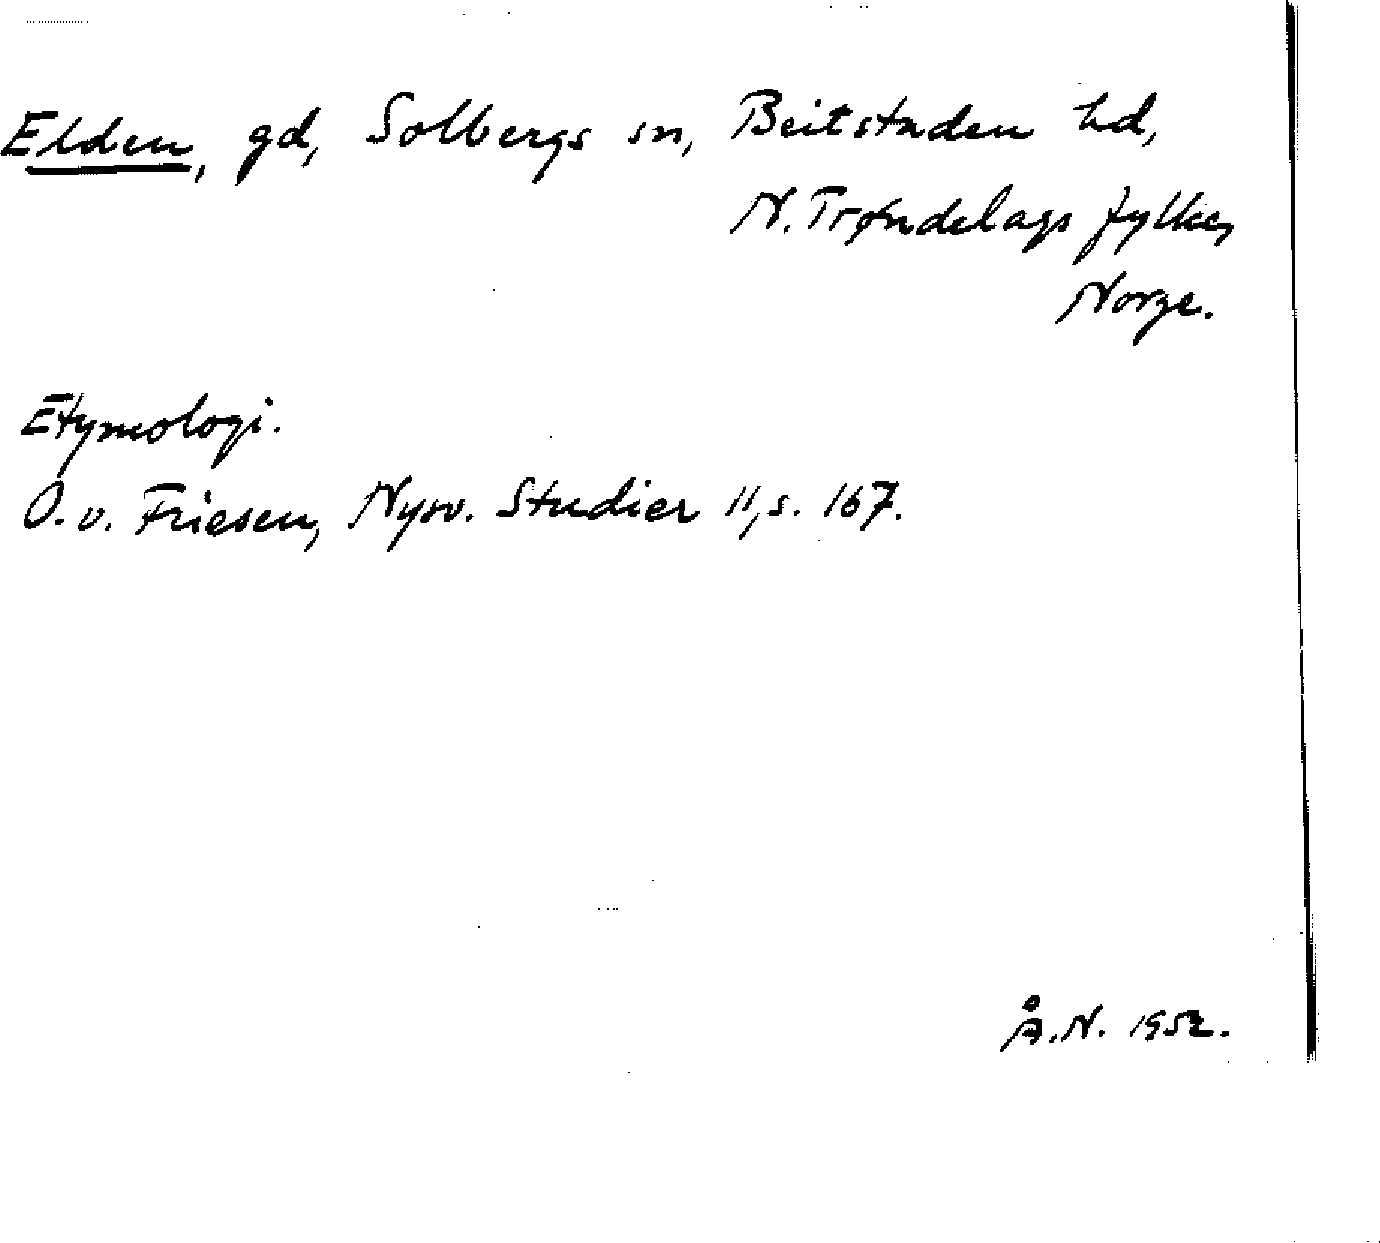 Elden, gd, Solbergs sn, Beitstaden hd,
N. Trøndelags fylke,
Norge.
Etymologi.
O. v. Friesen, Nysv. Studier 11, s. 167.
Å. N. 1952.